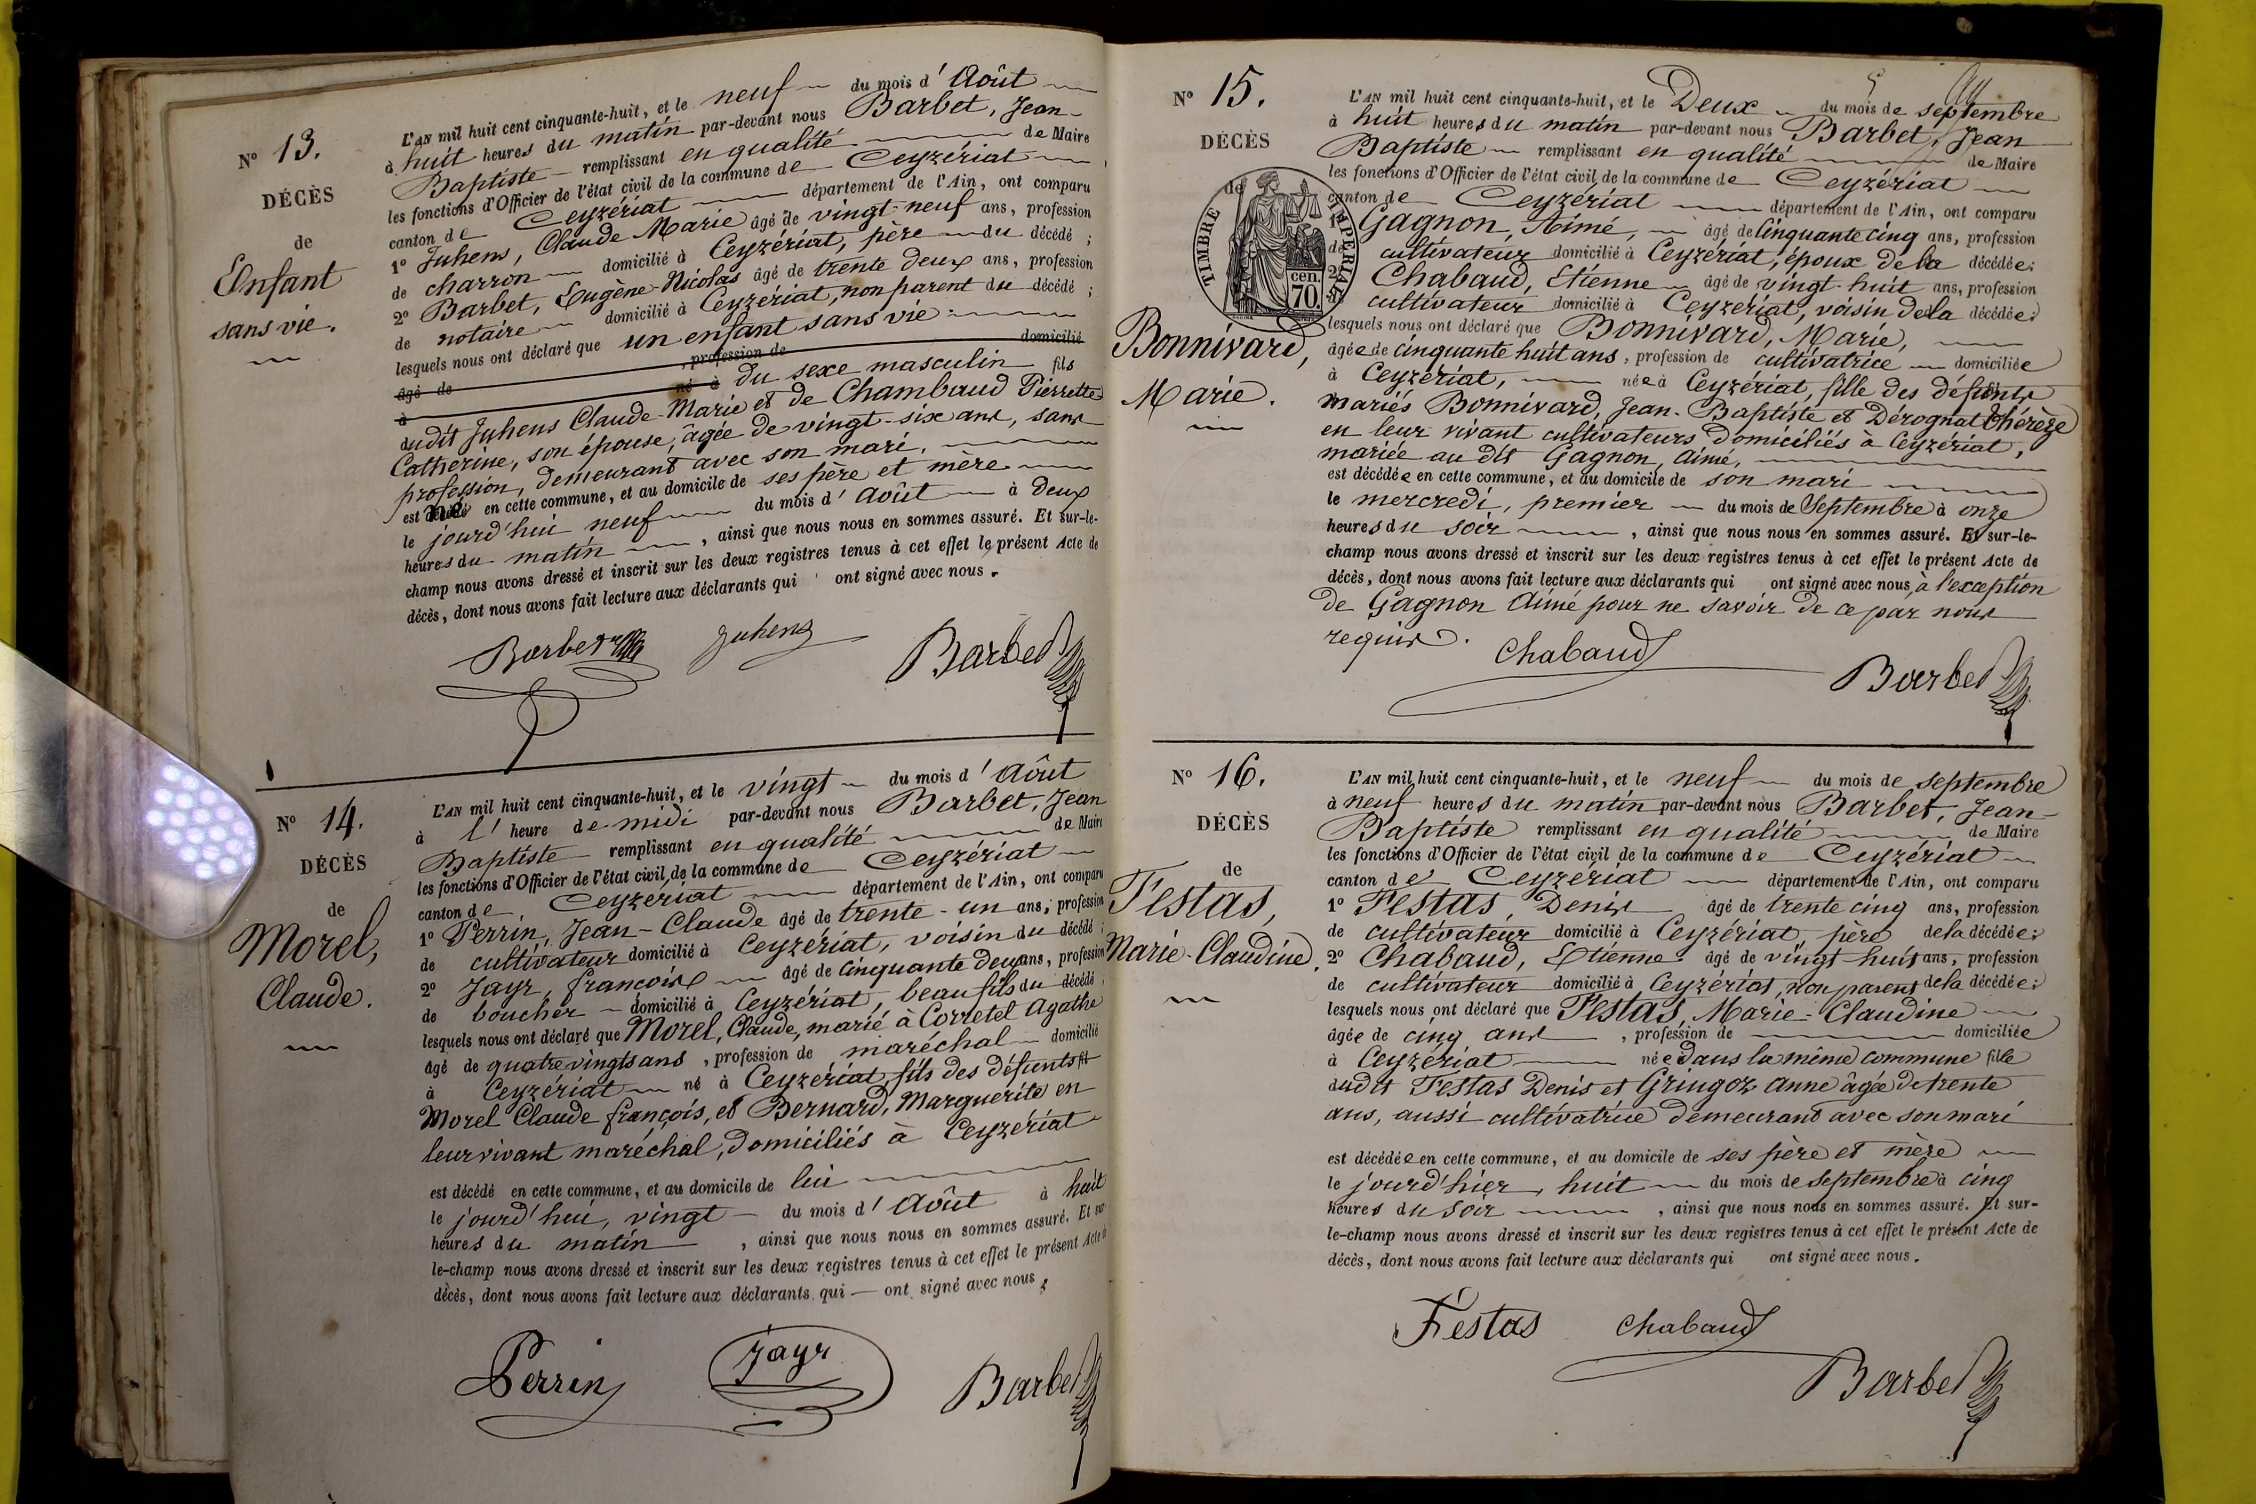 N° 13.
DÉCÈS
de
Enfant
sans vie.
L'AN mil huit cent cinquante-huit, et le neuf du mois d'Août
à huit heures du matin par-devant nous Barbet, Jean-
Baptiste remplissant en qualité de Maire
les fonctions d'Officier de l'état civil de la commune de Ceyzériat
canton de Ceyzériat département de l'Ain, ont comparu
1° Juhens, Claude Marie âgé de vingt-neuf ans, profession
de charron domicilié à Ceyzériat, père du décédé ;
2° Barbet, Eugène-Nicolas âgé de trente deux ans, profession
de notaire domicilié à Ceyzériat, non parent du décédé ;
lesquels nous ont déclaré que un enfant sans vie
âgé de , profession de domicilié
à né à du sexe masculin fils
dudit Juhens Claude-Marie et de Chambaud Pierrette
Catherine, son épouse, âgée de vingt-six ans, sans
profession, demeurant avec son mari,
est né en cette commune, et au domicile de ses père et mère
le jourd'hui neuf du mois d'Août à deux
heures du matin , ainsi que nous nous en sommes assuré. Et sur-le-
champ nous avons dressé et inscrit sur les deux registres tenus à cet effet le présent Acte de
décès, dont nous avons fait lecture aux déclarants qui ont signé avec nous.
Barbet Juhens Barbet
N° 14.
DÉCÈS
de
Morel,
Claude.
L'AN mil huit cent cinquante-huit, et le vingt du mois d'Août
à l'heure de midi par-devant nous Barbet, Jean
Baptiste remplissant en qualité de Maire
les fonctions d'Officier de l'état civil de la commune de Ceyzériat
canton de Ceyzériat département de l'Ain, ont comparu
1° Perrin, Jean-Claude âgé de trente-un ans, profession
de cultivateur domicilié à Ceyzériat, voisin du décédé ;
2° Jayr, françois âgé de Cinquante deux ans, profession
de boucher domicilié à Ceyzériat, beau fils du décédé
lesquels nous ont déclaré que Morel, Claude, marié à Corretel Agathe
âgé de quatre vingts ans, profession de maréchal domicilié
à Ceyzériat né à Ceyzériat, fils des défunts
Morel Claude françois, et Bernard, Marguerite en
leur vivant maréchal, domiciliés à Ceyzériat
est décédé en cette commune, et au domicile de lui
le jourd'hui, vingt du mois d'Août à huit
heures du matin , ainsi que nous nous en sommes assuré. Et sur
le-champ nous avons dressé et inscrit sur les deux registres tenus à cet effet le présent Acte de
décès, dont nous avons fait lecture aux déclarants qui ont signé avec nous.
Perrin Jayr Barbet
N° 15.
DÉCÈS
de
TIMBRE IMPÉRIAL
70. cen.
Bonnivard,
Marie.
L'AN mil huit cent cinquante-huit, et le Deux du mois de septembre
à huit heures du matin par-devant nous Barbet, Jean
Baptiste remplissant en qualité de Maire
les fonctions d'Officier de l'état civil de la commune de Ceyzériat
canton de Ceyzériat département de l'Ain, ont comparu
1° Gagnon, Aimé, âgé de Cinquante cinq ans, profession
de cultivateur domicilié à Ceyzériat, époux de la décédée;
2° Chabaud, Etienne âgé de vingt-huit ans, profession
cultivateur domicilié à Ceyzériat, voisin de la décédée;
lesquels nous ont déclaré que Bonnivard, Marie,
âgée de cinquante huit ans, profession de cultivatrice domiciliée
à Ceyzériat, née à Ceyzériat, fille des défunts
mariés Bonnivard, Jean-Baptiste et Dérognat Thérèze
en leur vivant cultivateurs domiciliés à Ceyzériat,
mariée au dit Gagnon, Aimé,
est décédée en cette commune, et au domicile de son mari
le mercredi, premier du mois de Septembre à onze
heures du soir , ainsi que nous nous en sommes assuré. Et sur-le-
champ nous avons dressé et inscrit sur les deux registres tenus à cet effet le présent Acte de
décès, dont nous avons fait lecture aux déclarants qui ont signé avec nous, à l'exception
de Gagnon Aimé pour ne savoir de ce par nous
requis.
Chabaud Barbet
N° 16.
DÉCÈS
de
Festas,
Marie-Claudine.
L'AN mil huit cent cinquante-huit, et le neuf du mois de septembre
à neuf heures du matin par-devant nous Barbet, Jean-
Baptiste remplissant en qualité de Maire
les fonctions d'Officier de l'état civil de la commune de Ceyzériat
canton de Ceyzériat département de l'Ain, ont comparu
1° Festas, Denis âgé de trente cinq ans, profession
de cultivateur domicilié à Ceyzériat, père de la décédée;
2° Chabaud, Etienne âgé de vingt huit ans, profession
de cultivateur domicilié à Ceyzériat, non parent de la décédée;
lesquels nous ont déclaré que Festas, Marie-Claudine
âgée de cinq ans , profession de domiciliée
à Ceyzériat née dans la même commune fille
dudit Festas Denis et Gringoz anne âgée de trente
ans, aussi cultivatrice demeurant avec son mari
est décédée en cette commune, et au domicile de ses père et mère
le jourd'hier, huit du mois de septembre à cinq
heures du soir , ainsi que nous nous en sommes assuré. Et sur-
le-champ nous avons dressé et inscrit sur les deux registres tenus à cet effet le présent Acte de
décès, dont nous avons fait lecture aux déclarants qui ont signé avec nous.
Festas Chabaud
Barbet